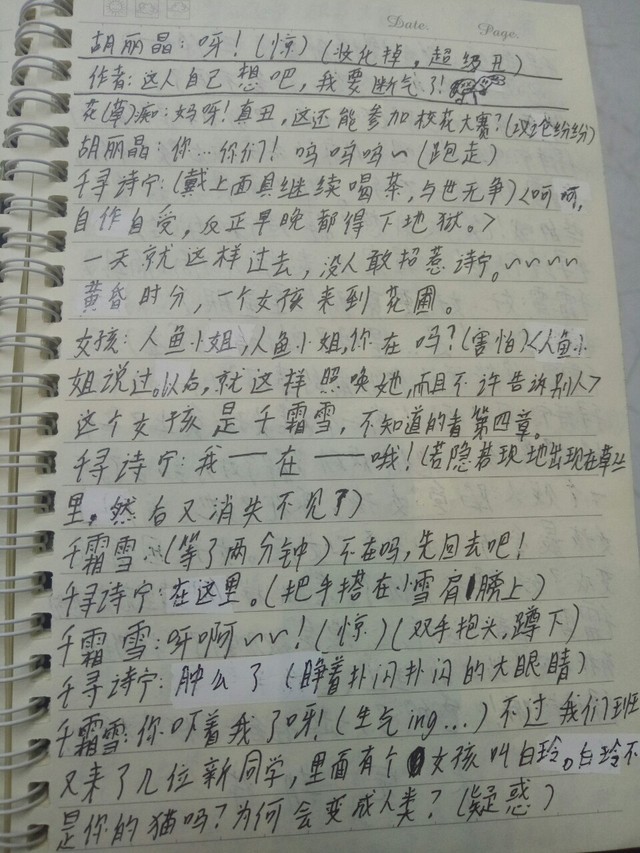 Date.    Page.
胡丽晶:呀!(惊)(妆化掉,超级丑)
作者:这人自己想吧,我要断气了!
花(草)痴:妈呀!真丑,这还能参加校花大赛?(议论纷纷)
胡丽晶:你…你们!呜呜呜~(跑走)
千寻诗宁:(戴上面具继续喝茶,与世无争)<呵呵,
自作自受,反正早晚都得下地狱。>
一天就这样过去,没人敢招惹诗宁。~~~~
黄昏时分,一个女孩来到花圃。
女孩:人鱼小姐,人鱼小姐,你在吗?(害怕)<人鱼小
姐说过。以后,就这样照唤她,而且不许告诉别人>
这个女孩是千霜雪,不知道的看第四章。
千寻诗宁:我——在——哦!(若隐若现地出现在草丛
里。然后又消失不见了)
千霜雪:(等了两分钟)不在吗,先回去吧!
千寻诗宁:在这里。(把手搭在小雪肩膀上)
千霜雪:呀啊~~!(惊)(双手抱头,蹲下)
千寻诗宁:肿么了(睁着扑闪扑闪的大眼睛)
千霜雪:你吓着我了呀!(生气ing…)不过我们班
又来了几位新同学,里面有个女孩叫白玲。白玲不
是你的猫吗?为何会变成人类?(疑惑)